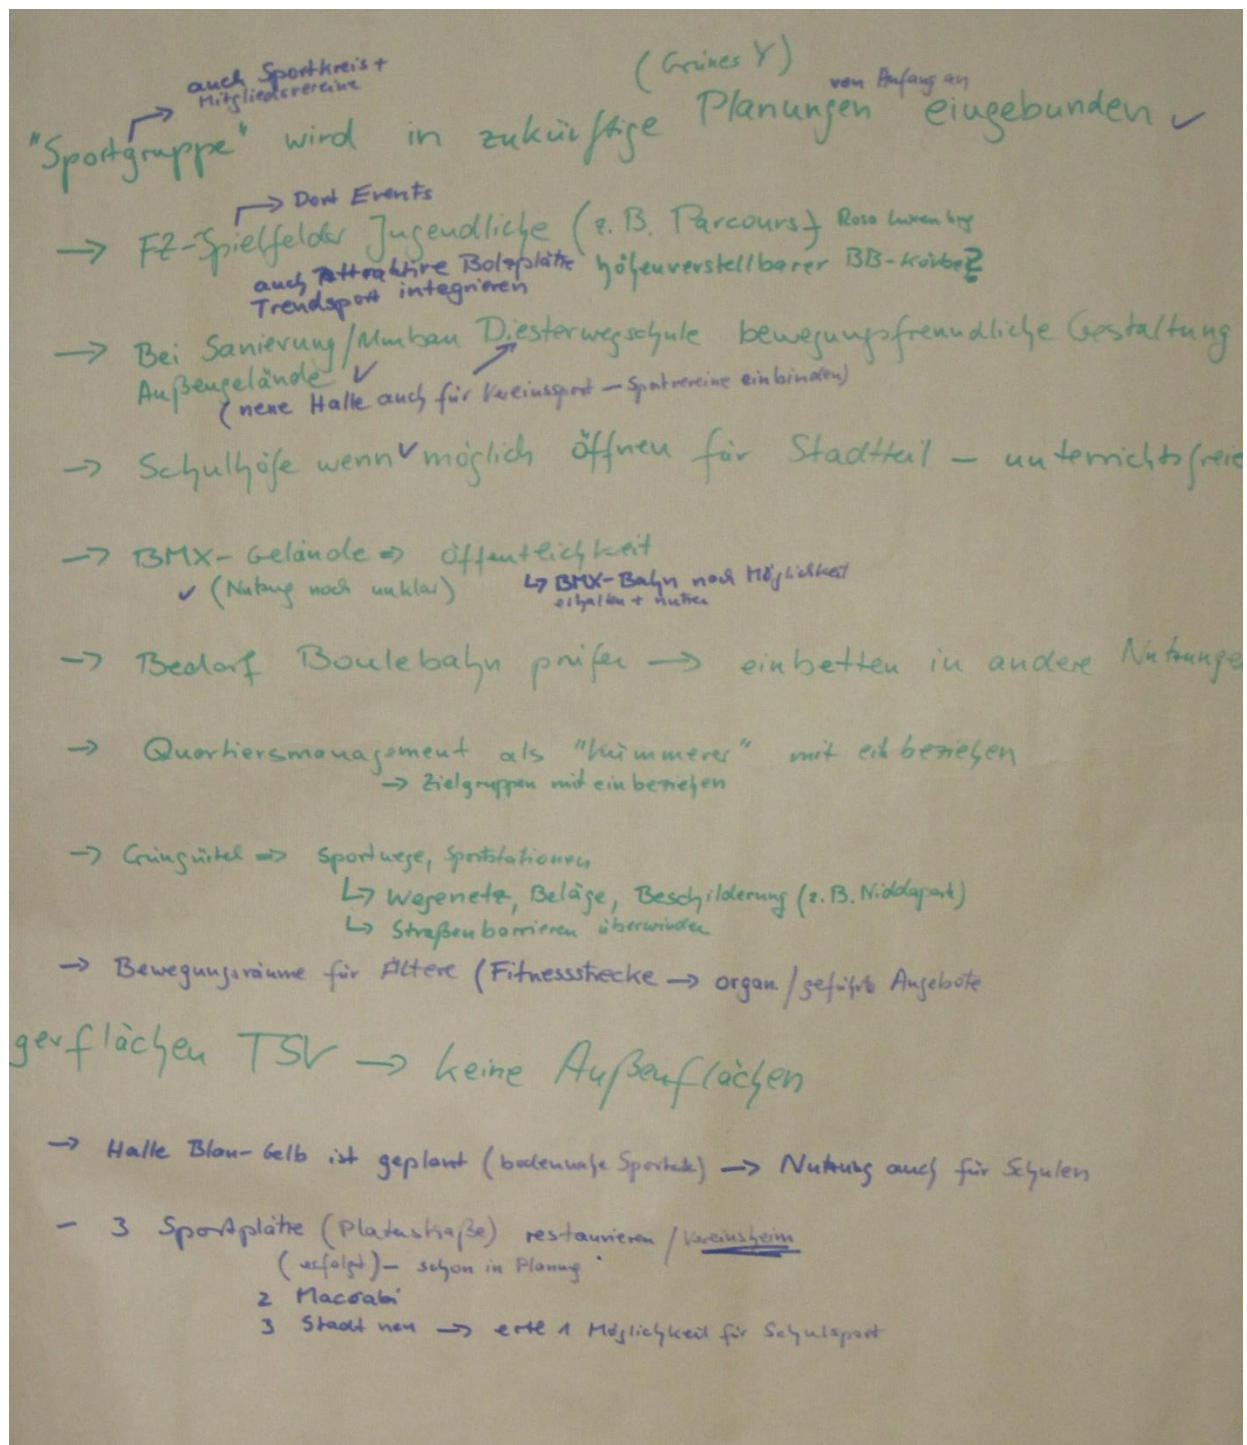 auch Sportkreis +
Mitgliedsvereine
(Grünes Y)
von Anfang an
"Sportgruppe" wird in zukünftige Planungen eingebunden ✓
→ Dort Events
→ FZ-Spielfelder Jugendliche (z.B. Parcours) Rosa Luxemburg
auch Attraktive Bolzplätze höhenverstellbarer BB-Körbe?
Trendsport integrieren
→ Bei Sanierung/Umbau Diesterwegschule bewegungsfreundliche Gestaltung
Außengelände ✓
(neue Halle auch für Vereinssport – Sportvereine einbinden)
→ Schulhöfe wenn ✓ möglich öffnen für Stadtteil – unterrichtsfreie
→ BMX-Gelände ⇒ Öffentlichkeit
✓ (Nutzung noch unklar) ↳ BMX-Bahn nach Möglichkeit
erhalten + nutzen
→ Bedarf Boulebahn prüfen → einbetten in andere Nutzunge
→ Quartiersmanagement als "Kümmerer" mit einbeziehen
→ Zielgruppen mit einbeziehen
→ Grüngürtel ⇒ Sportwege, Sportstationen
↳ Wegenetz, Beläge, Beschilderung (z.B. Niddapark)
↳ Straßenbarrieren überwinden
→ Bewegungsräume für Ältere (Fitnessstrecke → organ/geführte Angebote
gerflächen TSV → keine Außenflächen
→ Halle Blau-Gelb ist geplant (bodennahe Sportarten) → Nutzung auch für Schulen
– 3 Sportplätze (Platenstraße) restaurieren / Vereinsheim
(erfolgt) – schon in Planung
2 Maccabi
3 Stadt neu → 1 Möglichkeit für Schulsport